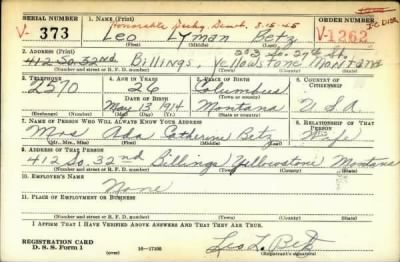 SERIAL NUMBER 1. NAME (Print) ORDER NUMBER
Honorable Disch, 3-15-45
V- 373 Leo Lyman Betz V-1262
(First) (Middle) (Last)
2. ADDRESS (Print) 203 So. 27th St.
412 So. 32nd Billings, Yellowstone Montana
(Number and street or R. F. D. number) (Town) (County) (State)
3. TELEPHONE 4. AGE IN YEARS 5. PLACE OF BIRTH 6. COUNTRY OF CITIZENSHIP
2570 26 Columbus
DATE OF BIRTH (Town or county)
May 13, 1914 Montana U S A
(Exchange) (Number) (Mo.) (Day) (Yr.) (State or country)
7. NAME OF PERSON WHO WILL ALWAYS KNOW YOUR ADDRESS 8. RELATIONSHIP OF THAT PERSON
Mrs Ada Catherine Betz Wife
(Mr., Mrs., Miss) (First) (Middle) (Last)
9. ADDRESS OF THAT PERSON
412 So. 32nd Billings Yellowstone Montana
(Number and street or R. F. D. number) (Town) (County) (State)
10. EMPLOYER'S NAME
None
11. PLACE OF EMPLOYMENT OR BUSINESS
(Number and street or R. F. D. number) (Town) (County) (State)
I AFFIRM THAT I HAVE VERIFIED ABOVE ANSWERS AND THAT THEY ARE TRUE.
REGISTRATION CARD
D. S. S. Form 1 (over) 16-17105 Leo L. Betz
(Registrant's signature)